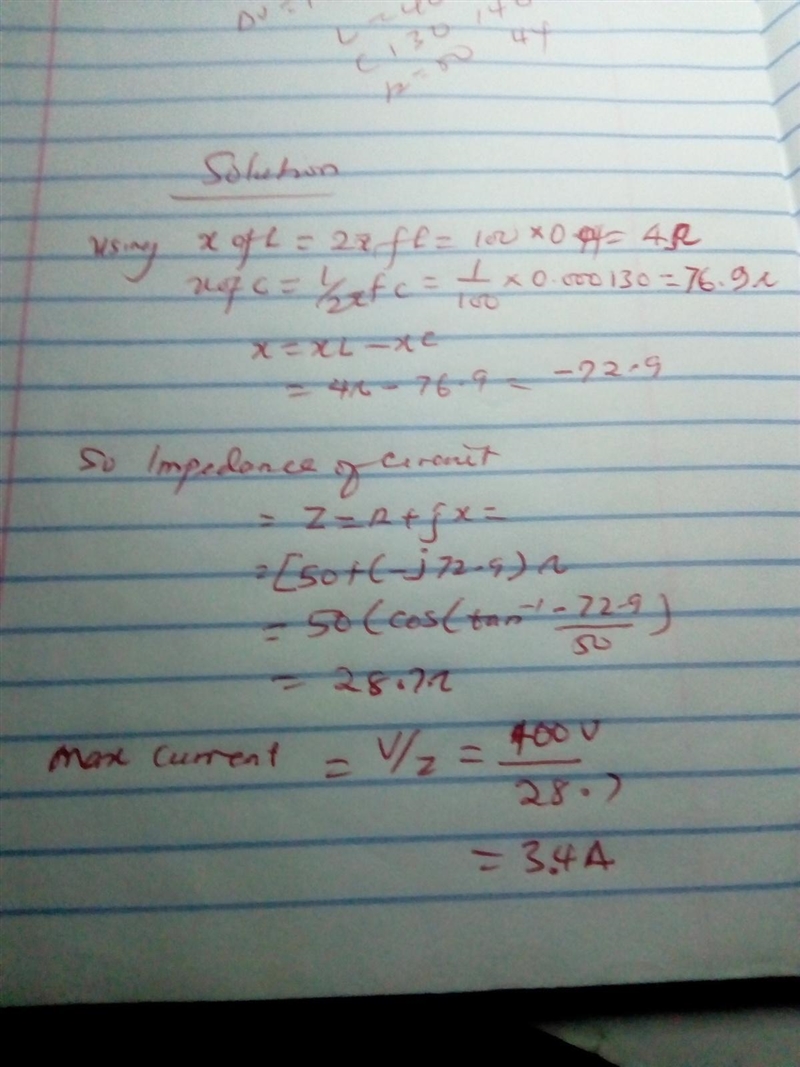 L = 40 140
C 130 4f
R = 50
Solution
Using x of L = 2πfL = 100 × 0.04 = 4Ω
x of C = 1/2πfC = 1/100 × 0.000130 = 76.9Ω
x = xL - xC
= 4Ω - 76.9 = -72.9
So Impedance of circuit
= Z = R + jx =
= [50 + (-j72.9) Ω
= 50 (cos(tan⁻¹ -72.9/50)
= 28.7Ω
max current = V/Z = 100V/28.7
= 3.4A